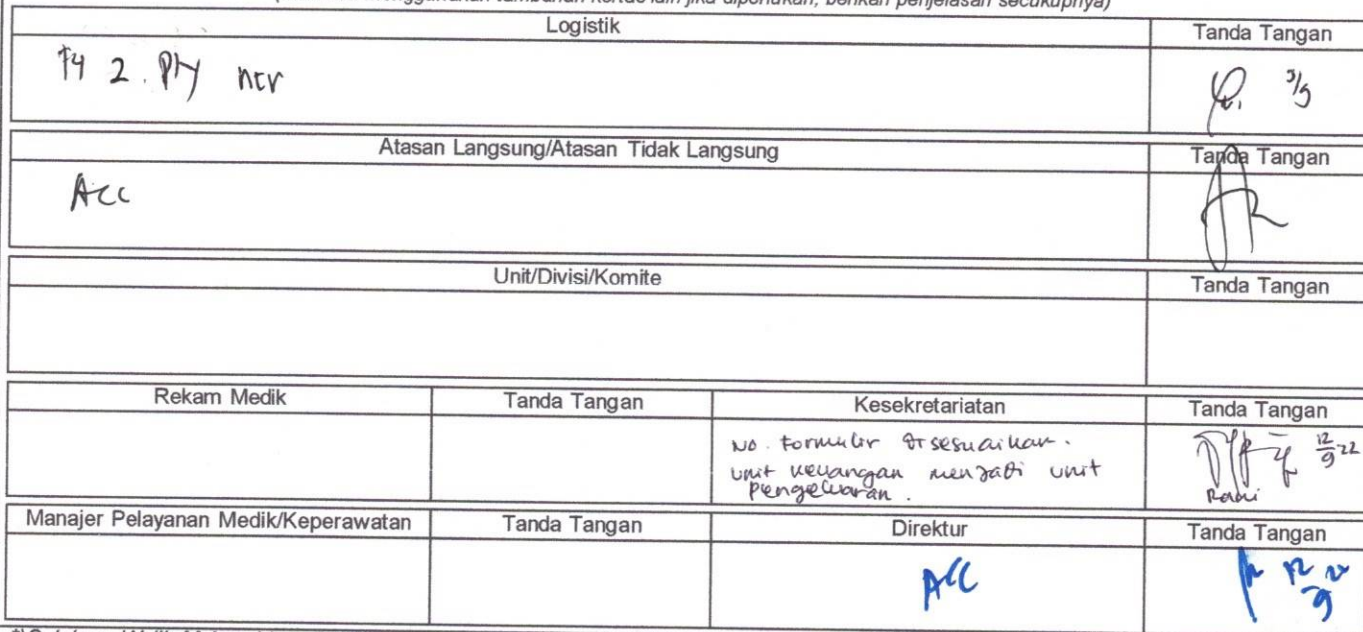 menggunakan tambahan kertas lain jika diperlukan, berikan penjelasan secukupnya)
Logistik Tanda Tangan
F4 2. Ply ncr 3/9
Atasan Langsung/Atasan Tidak Langsung Tanda Tangan
Acc
Unit/Divisi/Komite Tanda Tangan
Rekam Medik Tanda Tangan Kesekretariatan Tanda Tangan
No. Formulir disesuaikan. 12/9 22
unit keuangan menjadi unit
pengeluaran.
Manajer Pelayanan Medik/Keperawatan Tanda Tangan Direktur Tanda Tangan
ACC 12/9 22